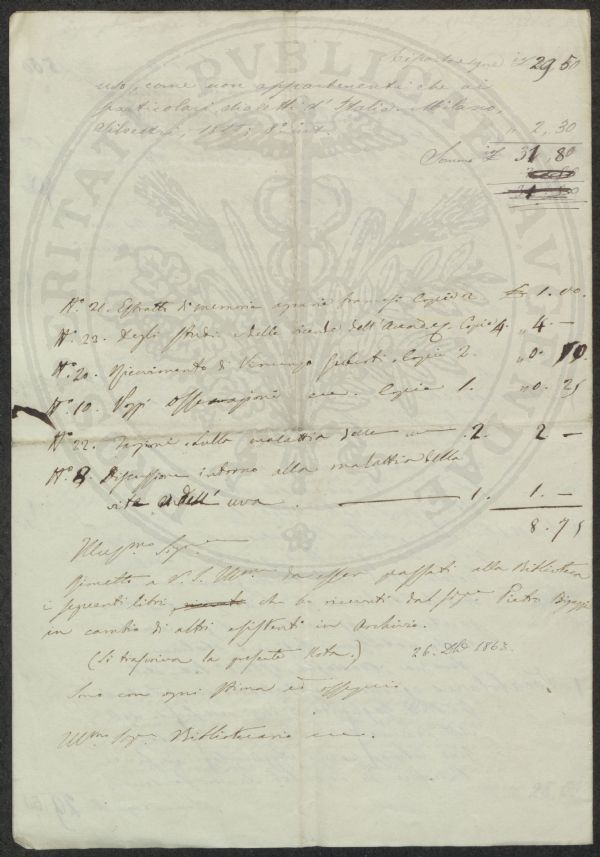 29.50
uso, come non appartenenti che ai
particolari dialetti d'Italia. Milano,
Silvestri, 8° " 2,30
Somma 31,80
N° 21. Estratti di memoria francesi Copie 1.00.
N° 23. Degli studi e delle vicende dell'Accad. Copie 4. " 4. —
N° 20. di Vincenzo Gioberti. Copie 2. " 0. 50
N° 10. Osservazioni ecc. Copie 1. " 0. 25
N° 22. sulla malattia delle 2. 2 —
N° 8. Discussione intorno alla malattia della
vite e dell' uva. 1. 1. —
8.75
Illus.mo Sig.
Rimetto a V. S. Ill.ma da esser passati alla Biblioteca
i seguenti libri, che ho ricevuti dal Sig.r Pietro Bigazzi
in cambio di altri esistenti in Archivio.
(Si trascriva la presente Nota.) 26. 1863.
Sono con ogni stima ed ossequio
Ill.mo Sig.r Bibliotecario
PUBLICAE